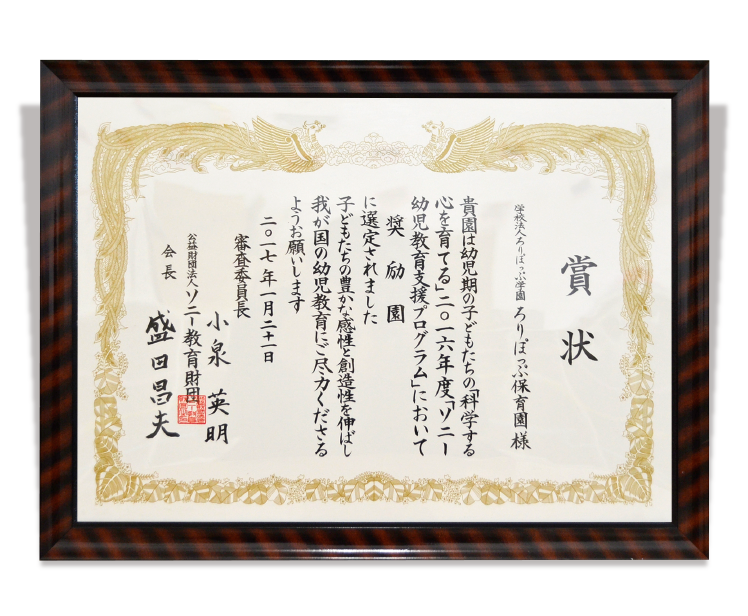 賞状
学校法人ろりぽっぷ学園 ろりぽっぷ保育園 様
貴園は幼児期の子どもたちの「科学する
心を育てる」二〇一六年度「ソニー
幼児教育支援プログラム」において
奨励園
に選定されました
子どもたちの豊かな感性と創造性を伸ばし
我が国の幼児教育にご尽力くださる
ようお願いします
二〇一七年一月二十一日
審査委員長 小泉英明
公益財団法人ソニー教育財団
会長 盛田昌夫